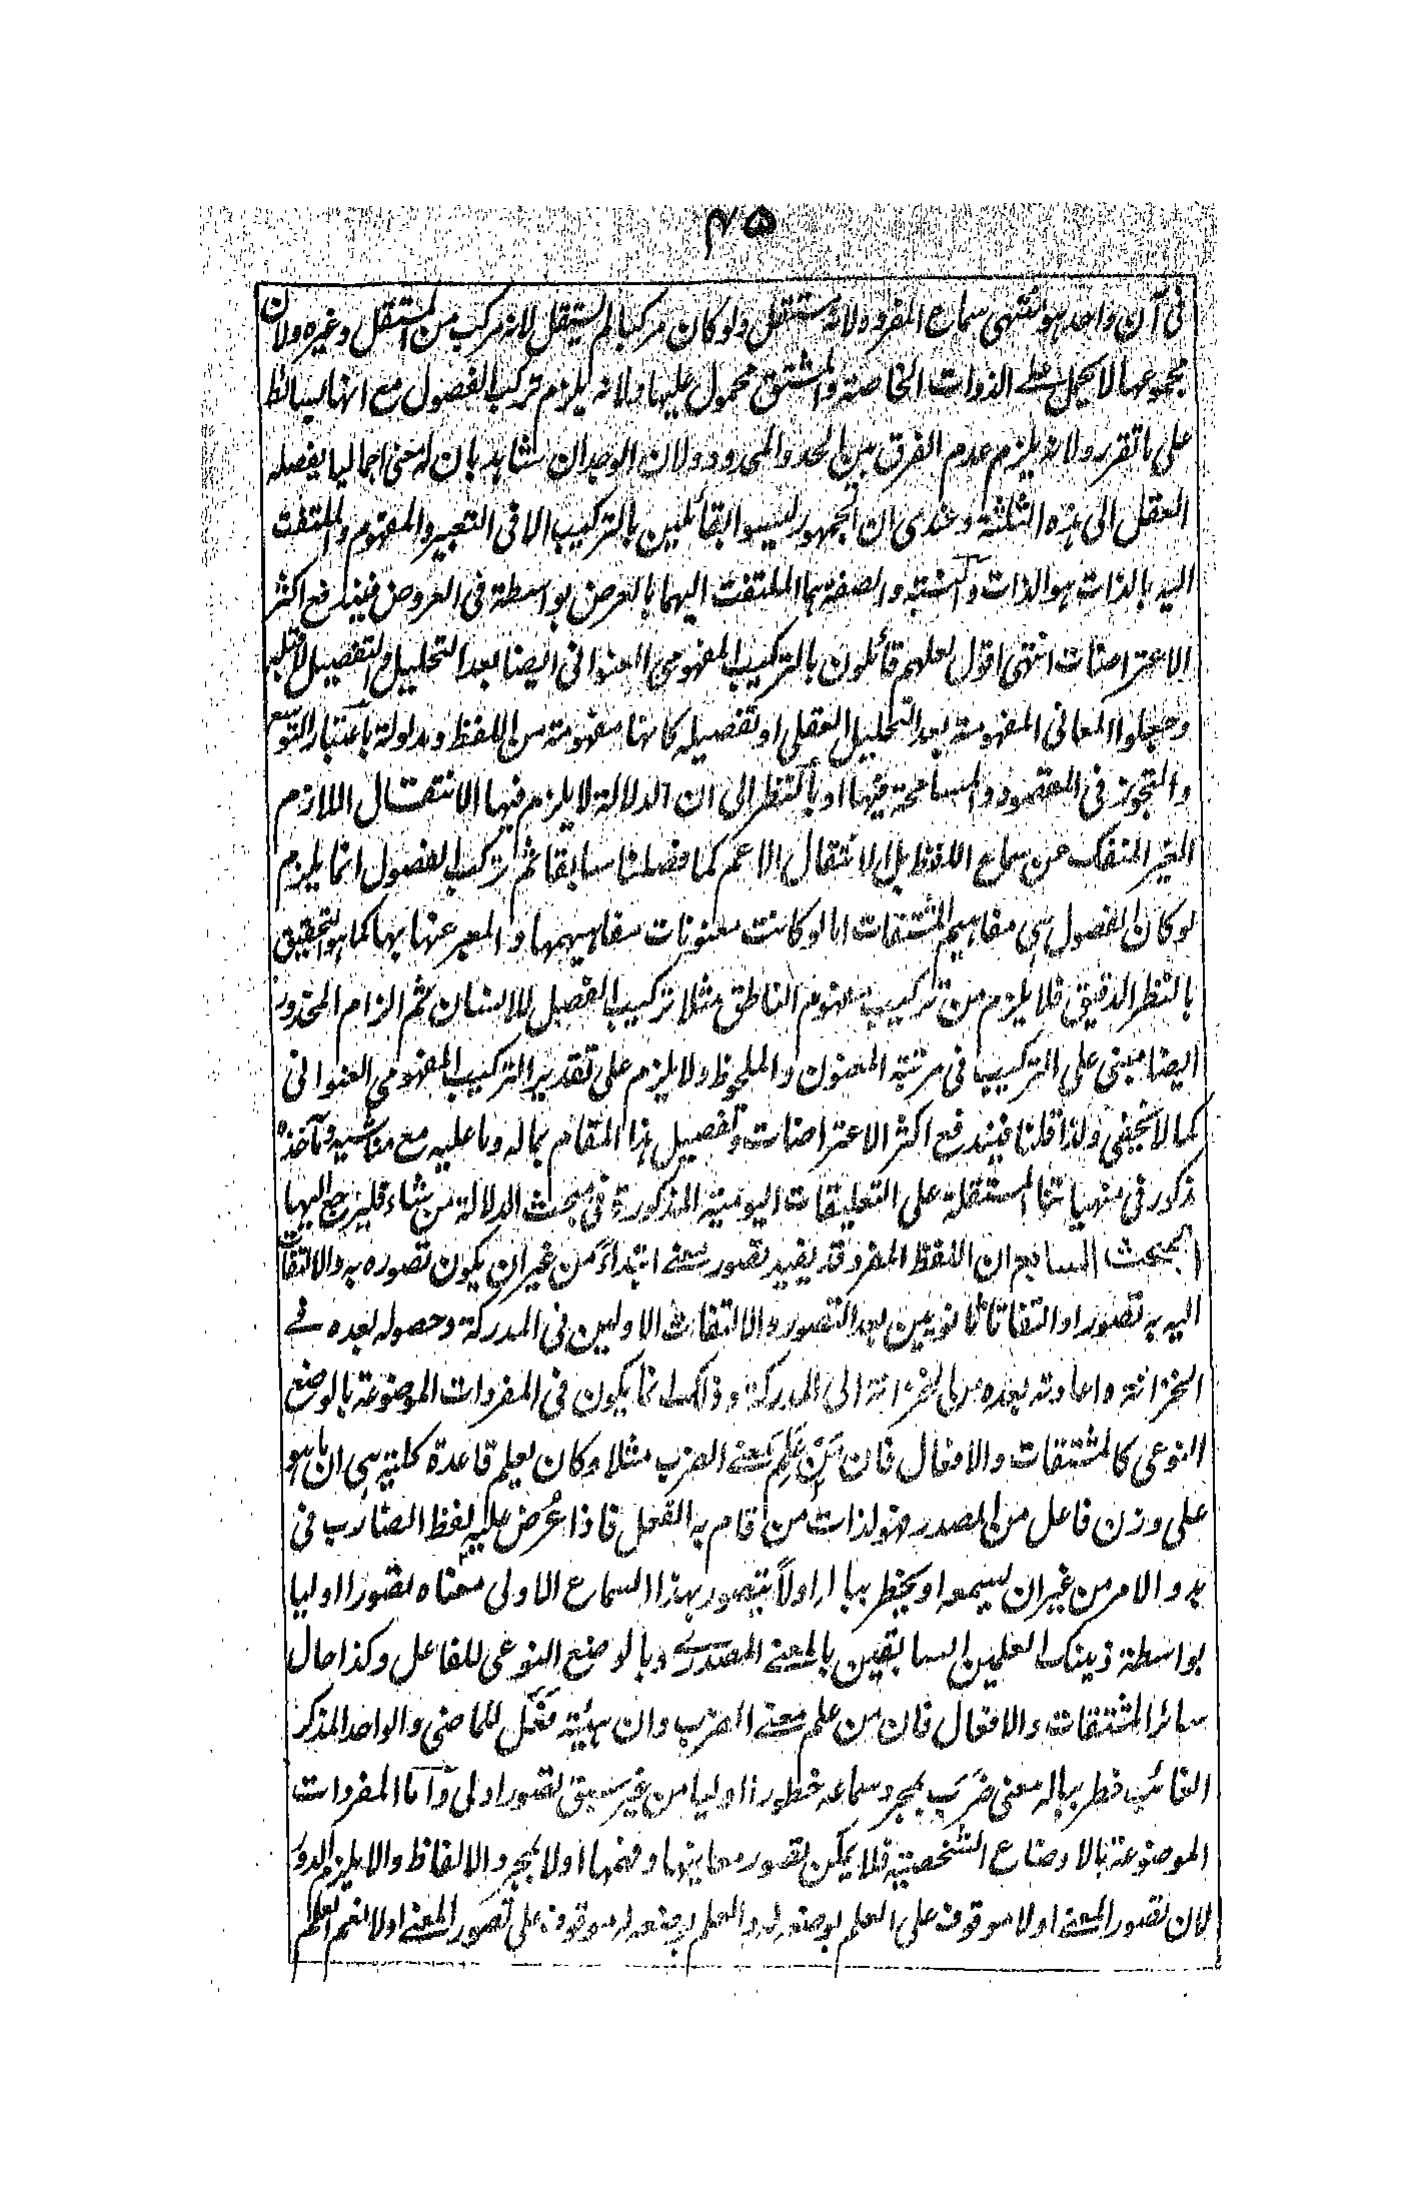 ٤٥
فى آن واحد هو منتهى سماع المفرد ولانه مستقل ولو كان مركبا لم يستقل لانه مركب من المستقل وغيره ولان
مجموعها لا يحمل على الذوات الخاصة والمشتق محمول عليها ولانه يلزم تركب الفصول مع انها بسائط
على ما تقرر ولانه يلزم عدم الفرق بين الحد والمحدود ولان الوجدان شاهد بان له معنى اجماليا يفصله
العقل الى هذه الثلثة وعندى ان الجمهور ليسوا بقائلين بالتركيب الا فى التعبير والمفهوم والملتفت
اليه بالذات هو الذات والنسبة والصفة هما الملتفت اليهما بالعرض بواسطة فى العروض فيندفع اكثر
الاعتراضات انتهى اقول لعلهم قائلون بالتركيب المفهومى العنوانى ايضا بعد التحليل والتفصيل لا قبله
وجعلوا المعانى المفهومة بعد التحليل العقلى او تفصيله كانها مفهومة من اللفظ ومدلولة باعتبار التوسع
والتجوز فى المقصود والمسامحة فيها او بالنظر الى ان الدلالة لا يلزم فيها الانتقال اللازم
الغير المنفك عن سماع اللفظ بل الانتقال الاعم كما فصلنا سابقا ثم تركب الفصول انما يلزم
لو كان الفصول هى مفاهيم المشتقات اما لو كانت معنونات مفاهيمها والمعبر عنها بها كما هو التحقيق
بالنظر الدقيق فلا يلزم من تركيب مفهوم الناطق مثلا تركيب الفصل للانسان ثم الزام المحذور
ايضا مبنى على التركيب فى مرتبة المعنون والملحوظ ولا يلزم على تقدير التركيب المفهومى العنوانى
كما لا يخفى ولذا قلنا فيندفع اكثر الاعتراضات وتفصيل هذا المقام بماله وما عليه مع مناشيه ومآخذه
مذكور فى منهياتنا المستقلة على التعليقات اليومية المذكورة فى مبحث الدلالة من شاء فليرجع اليها
المبحث السابع ان اللفظ المفرد قد يفيد تصور معنى ابتداءً من غير ان يكون تصوره به والالتفات
اليه به تصورا والتفاتا ثانويين بعد التصور والالتفات الاولين فى المدركة وحصوله بعده فى
الخزانة واعادته بعده من الخزانة الى المدركة وذلك انما يكون فى المفردات الموضوعة بالوضع
النوعى كالمشتقات والافعال فان مَنْ عَلِمَ معنى الضرب مثلا وكان يعلم قاعدة كلية هى ان ما هو
على وزن فاعل من المصدر فهو لذات من قام به الفعل فاذا عُرِض عليه لفظ الضارب فى
بدو الامر من غير ان يسمعه او يخطر بباله اولاً يتصور بهذا السماع الاولى معناه تصورا اوليا
بواسطة ذينك العلمين السابقين بالمعنى المصدرى وبالوضع النوعى للفاعل وكذا حال
سائر المشتقات والافعال فان من علم معنى الضرب وان هيئة فَعَل للماضى والواحد المذكر
الغائب خطر بباله معنى ضَرَب بمجرد سماعه خطورا اوليا من غير سبق تصور اولى واما المفردات
الموضوعة بالاوضاع الشخصية فلا يمكن تصور معانيها وفهمها اولا بمجرد الالفاظ والا يلزم الدور
لان تصور المعنى اولا موقوف على العلم بوضعه له والعلم بوضعه له موقوف على تصور المعنى اولا نعم العلم